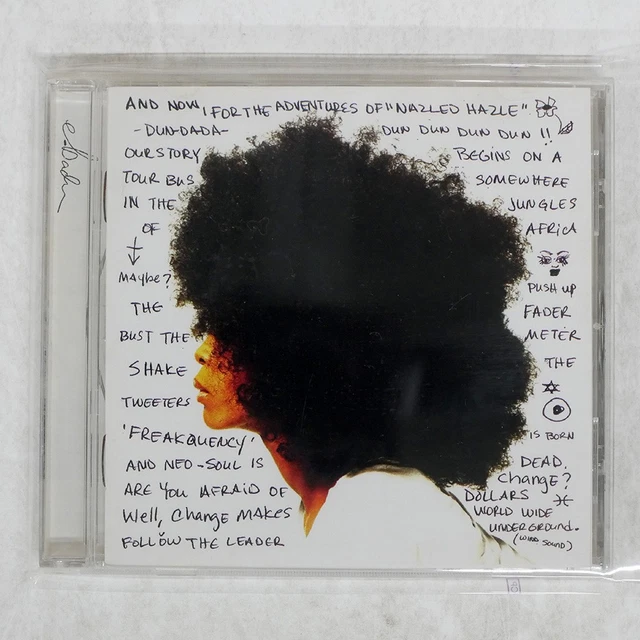 e. Badu
AND NOW, FOR THE ADVENTURES OF "NAZLED HAZLE"
-DUNDADA- DUN DUN DUN DUN !!
OUR STORY BEGINS ON A
TOUR BUS SOMEWHERE
IN THE JUNGLES
OF AFRICA
MAYBE?
PUSH UP
THE FADER
BUST THE METER
SHAKE THE
TWEETERS
'FREAKQUENCY' IS BORN
AND NEO-SOUL IS DEAD.
ARE YOU AFRAID OF Change?
Well, Change MAKES DOLLARS
FOLLOW THE LEADER WORLD WIDE
UNDERGROUND.
(WIND SOUND)